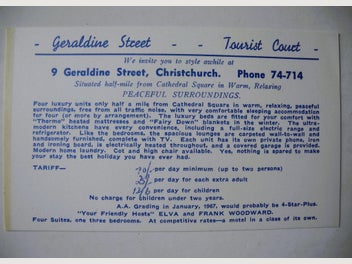 - Geraldine Street - - Tourist Court -
We invite you to style awhile at
9 Geraldine Street, Christchurch. Phone 74-714
Situated half-mile from Cathedral Square in Warm, Relaxing
PEACEFUL SURROUNDINGS.
Four luxury units only half a mile from Cathedral Square in warm, relaxing, peaceful
surroundings, free from all traffic noise, with very comfortable sleeping accommodation
for four (or more by arrangement). The luxury beds are fitted for your comfort with
"Thermo" heated mattresses and "Fairy Down" blankets in the winter. The ultra-
modern kitchens have every convenience, including a full-size electric range and
refrigerator. Like the bedrooms, the spacious lounge is carpeted wall-to-wall and
handsomely furnished, complete with TV. Each luxury flat has its own private phone, iron
and ironing board, is electrically heated throughout, and a covered garage is provided.
Modern home laundry. Cot and high chair available. Yes, nothing is spared to make
your stay the best holiday you have ever had.
TARIFF— per day minimum (up to two persons)
per day for each extra adult
12/6 per day for children
No charge for children under two years.
A.A. Grading in January, 1967, would probably be 4-Star-Plus.
"Your Friendly Hosts" ELVA and FRANK WOODWARD.
Four Suites, one three bedrooms. At competitive rates—a motel in a class of its own.